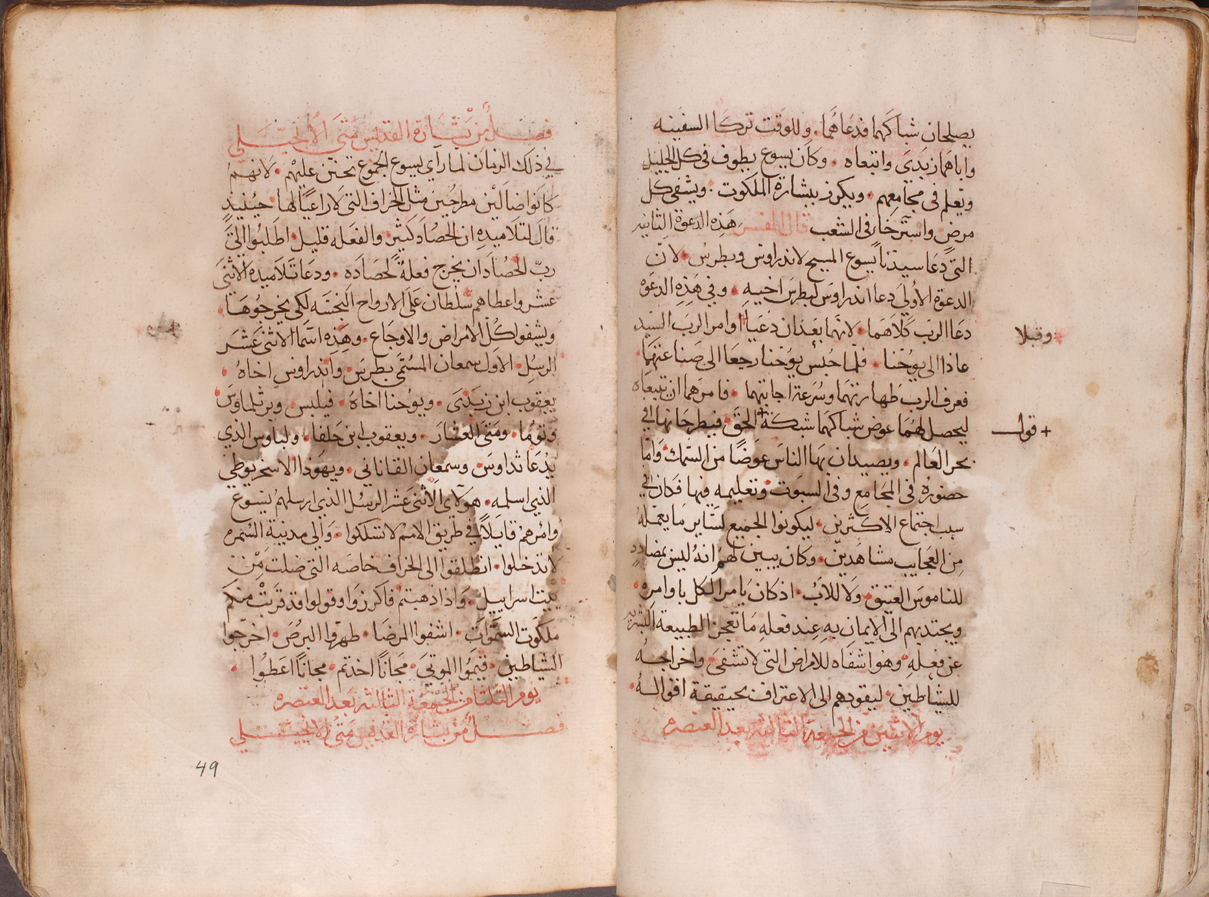 يصلحان شباكهما فدعاهما • وللوقت تركا السفينه
واباهما زبدى واتبعاه • وكان يسوع يطوف في كل الجليل
ويعلم في مجامعهم • ويكرز ببشارة الملكوت • ويشفي كل
مرض واسترخا في الشعب قال المفسر هذه الدعوة الثانيه
التي دعا سيدنا يسوع المسيح لاندراوس وبطرس • لان
الدعوة الاولي دعا اندراوس لبطرس اخيه • وفي هذه الدعوة
دعا الرب كلاهما • لانهما بعد ان دعيا اوامر الرب السيد
وقبلا
عاذا الي يوحنا • فلما حبس يوحنا رجعا الى صناعتهما •
فعرف الرب طهارتهما وسرعة اجابتهما • فامرهما ان تتبعاه
ليحصل لهما عوض شباكهما شبكة الحق • فيطرحانها في
+ قول
بحر العالم • ويصيدان بها الناس عوضا من السمك • واما
حضوره في المجامع وفي السبوت وتعليمه فيها فكان في
سبب اجتماع الاكثرين • ليكونوا الجميع لساير ما يعمله
من العجايب مشاهدين • وكان يبين لهم انه ليس بمضادد
للناموس العتيق • ولا للاب • اذ كان يامر الكل باوامره •
ويجتذبهم الي الايمان به عند فعله ما تعجز الطبيعة البشريه
عن فعله • وهو اشفاه للامراض التي لا تشفي • واخراجه
للشياطين • ليقودهم الى الاعتراف بحقيقة اقواله •
يوم الاثنين من الجمعة الثالثه بعد العنصره
فصل من بشارة القديس متى الانجيلي
في ذلك الزمان لما راي يسوع الجموع تحنن عليهم • لانهم
كانوا ضالين مطرحين مثل الخراف التي لا راعي لها • حينيذ
قال لتلاميذه ان الحصاد كثير • والفعله قليل • اطلبوا الى
رب الحصاد ان يخرج فعلة لحصاده • ودعا تلاميذه الاثني
عشر واعطاهم سلطان على الارواح النجسه لكي يخرجوها •
ويشفوا كل الامراض والاوجاع • وهذه اسما الاثني عشر
الرسل • الاول سمعان المسمى بطرس • واندراوس اخاه •
يعقوب ابن زبدى • ويوحنا اخاه • فيلبس • وبرتلماوس
وتوما • ومتى العشار • ويعقوب ابن حلفا • ولباوس الذي
يدعا تداوس • وسمعان القاناني • ويهودا الاسخريوطي
الذي اسلمه • هولاي الاثني عشر الرسل الذي ارسلهم ليسوع
وامرهم قايلا في طريق الامم لا تسلكوا • والى مدينة السمره
لا تدخلوا • انطلقوا الى الخراف خاصه التي ضلت من
بيت اسراييل • واذا ذهبتم فاكرزوا وقولوا قد قربت منكم
ملكوت السموات • اشفوا المرضا • طهروا البرص • اخرجوا
الشياطين • قيموا الموتي • مجانا اخذتم • مجانا اعطوا •
يوم الثلثا من الجمعة الثالثه بعد العنصره
فصل من بشارة القديس متى الانجيلي
49